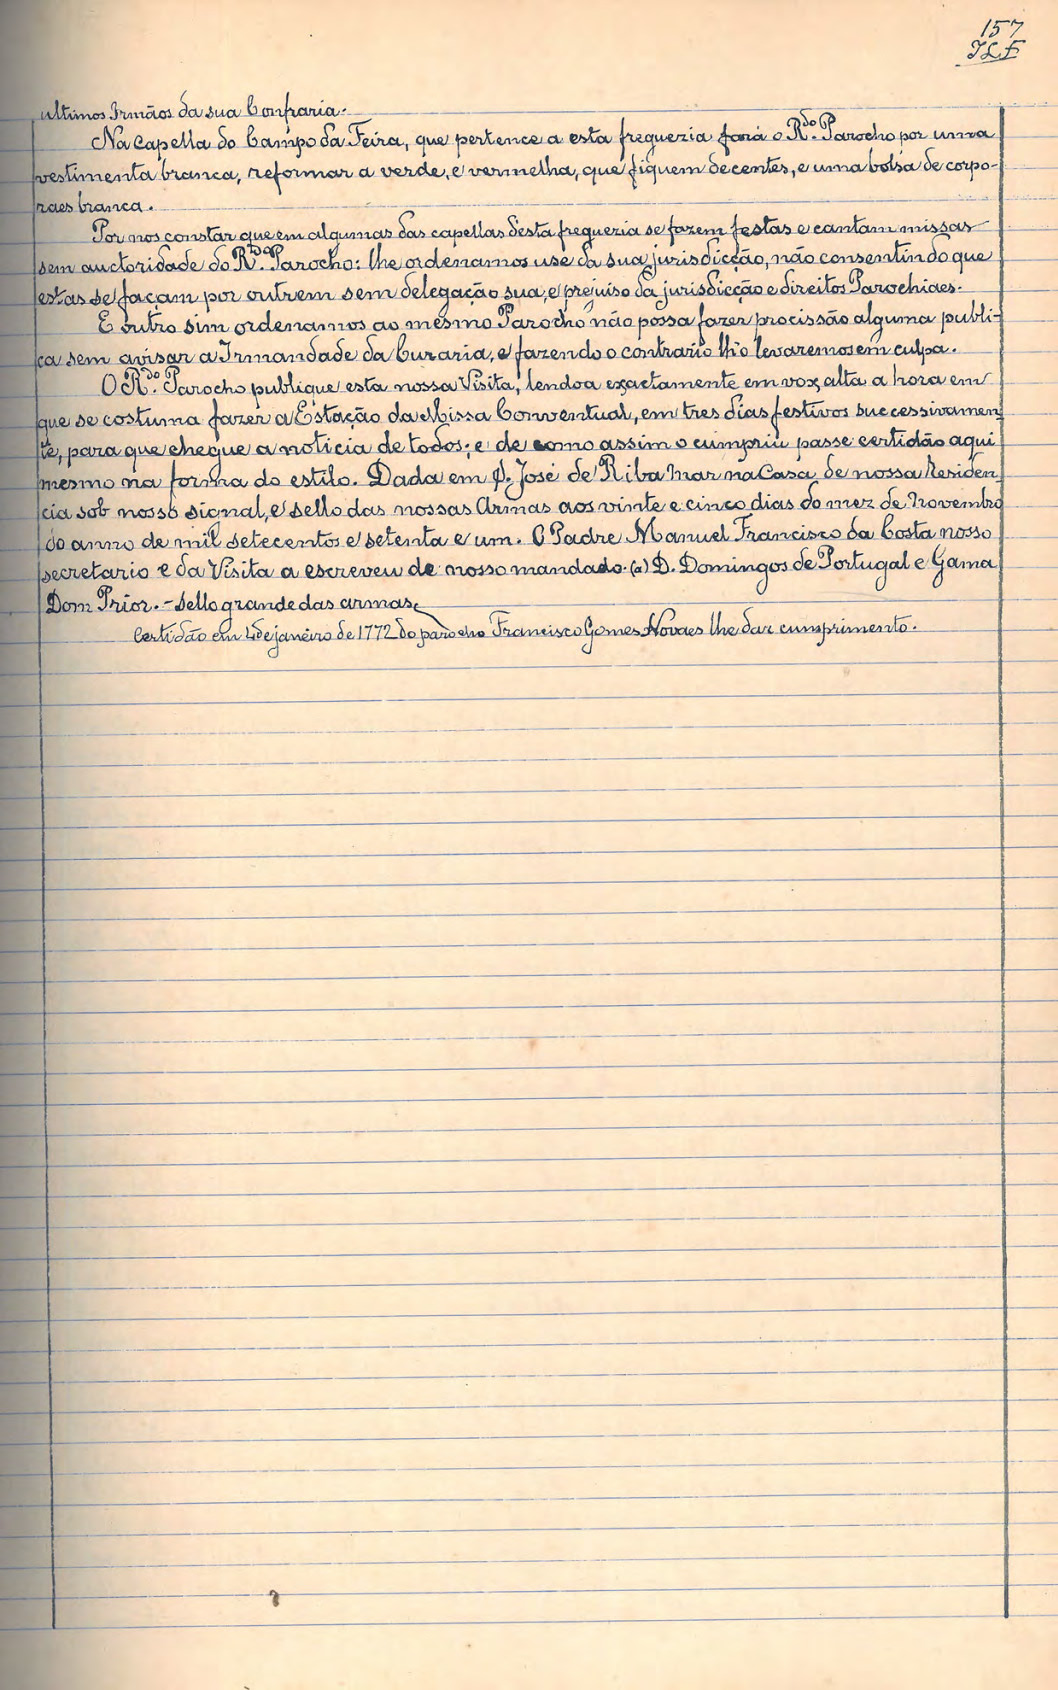 157
ultimos Irmãos da sua Confraria.
Na Capella do Campo da Feira, que pertence a esta freguezia fará o R.do Parocho por uma
vestimenta branca, reformar a verde, e vermelha, que fiquem decentes, e uma bolsa de corpo-
raes branca.
Por nos constar que em algumas das capellas desta freguezia se fazem festas e cantam missas
sem auctoridade do R.do Parocho: lhe ordenamos use da sua jurisdicção, não consentindo que
estas se façam por outrem sem delegação sua, e prejuiso da jurisdicção e direitos Parochiaes.
E outro sim ordenamos ao mesmo Parocho não possa fazer procissão alguma publi-
ca sem avisar a Irmandade da Curaria, e fazendo o contrario lh'o levaremos em culpa.
O R.do Parocho publique esta nossa Visita, lendo a exactamente em vox alta a hora em
que se costuma fazer a Estação da Missa Conventual, em tres dias festivos successivamen-
te, para que chegue a noticia de todos; e de como assim o cumpriu passe certidão aqui
mesmo na forma do estilo. Dada em S. José de Riba Mar na Casa de nossa Residen-
cia sob nosso signal, e sello das nossas Armas aos vinte e cinco dias do mez de Novembro
do anno de mil setecentos e setenta e um. O Padre Manuel Francisco da Costa nosso
secretario e da Visita a escreveu de nosso mandado. (a) D. Domingos de Portugal e Gama
Dom Prior. - Sello grande das armas.
Certidão em 4 de janeiro de 1772 do parocho Francisco Gomes Novaes lhe dar cumprimento.